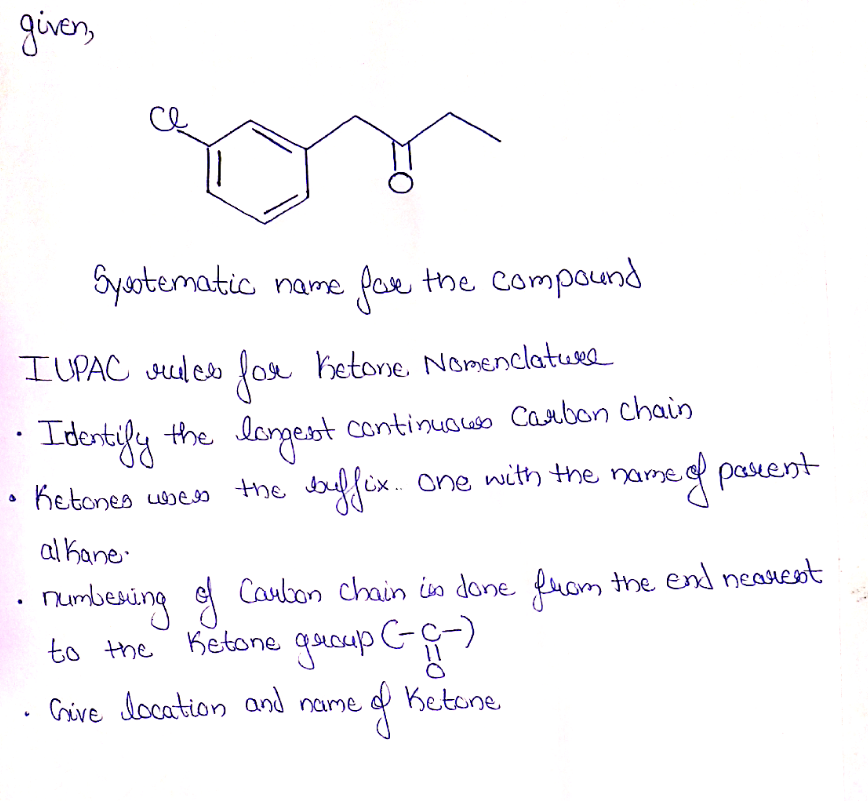 given,
Cl
O
Systematic name for the compound
IUPAC rules for Ketone Nomenclature
• Identify the longest continuous Carbon chain
• Ketones uses the suffix.. one with the name of parent
alkane.
• numbering of Carbon chain is done from the end nearest
to the Ketone group (-C-)
O
• Give location and name of Ketone